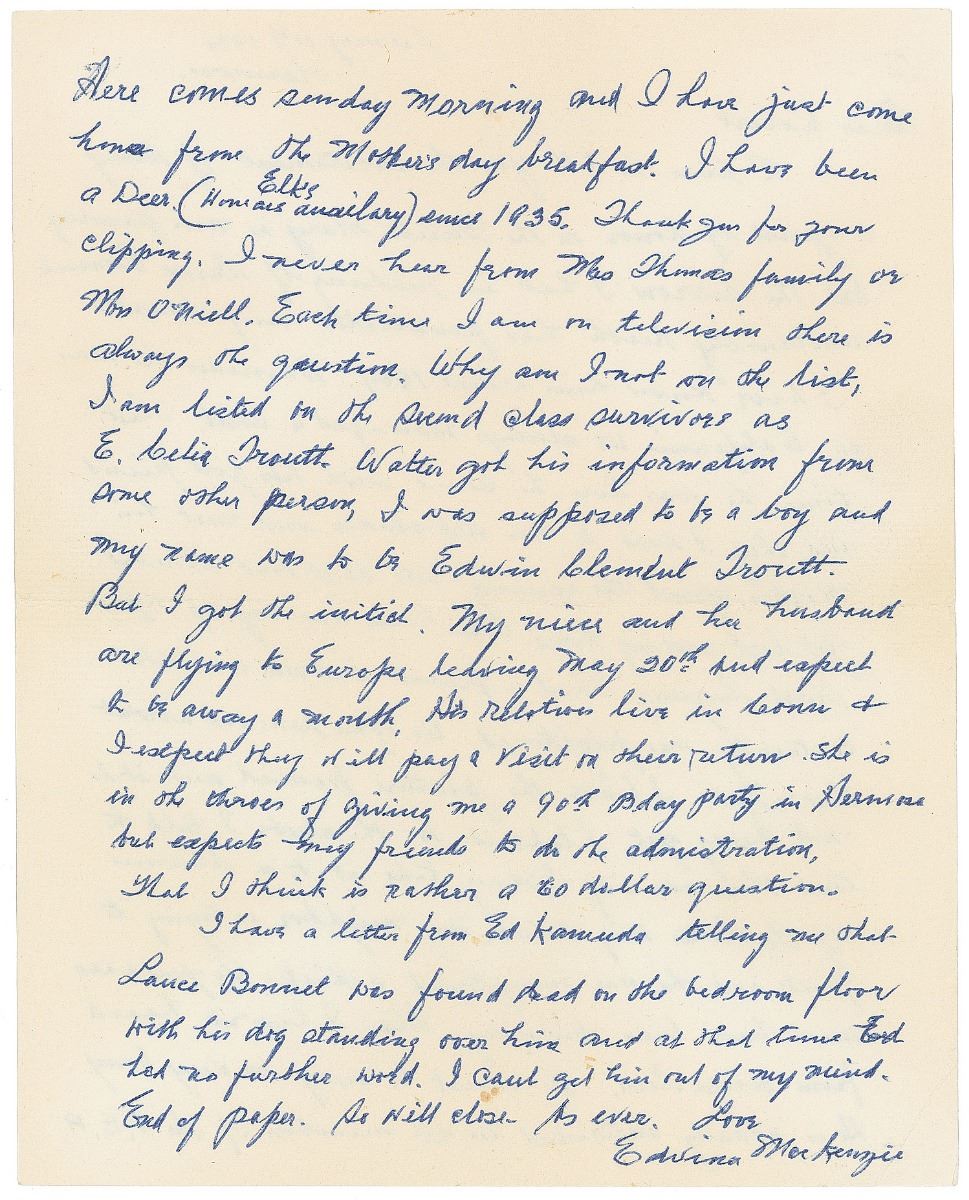 Here comes sunday Morning and I have just come
home from the Mother's day breakfast. I have been
a Deer. (Womans Elk's auxilary) since 1935. Thank you for your
clipping. I never hear from Mrs Thomas family or
Mrs O'Niell. Each time I am on television there is
always the question. Why am I not on the list,
I am listed on the second class survivors as
E. Celia Troutt. Walter got his information from
some other person, I was supposed to be a boy and
my name was to be Edwin Clement Troutt.
But I got the initial. My niece and her husband
are flying to Europe leaving May 20th and expect
to be away a month, His relatives live in Conn &
I expect they will pay a visit on their return. She is
in the throes of giving me a 90th Bday party in Hermosa
but expects my friends to do the admistration,
That I think is rather a 60 dollar question.
I have a letter from Ed Kamuda telling me that
Lance Bonnet was found dead on the bedroom floor
with his dog standing over him and at that time Ed
had no further word. I cant get him out of my mind.
End of paper. So will close- As ever. Love
Edwina MacKenzie